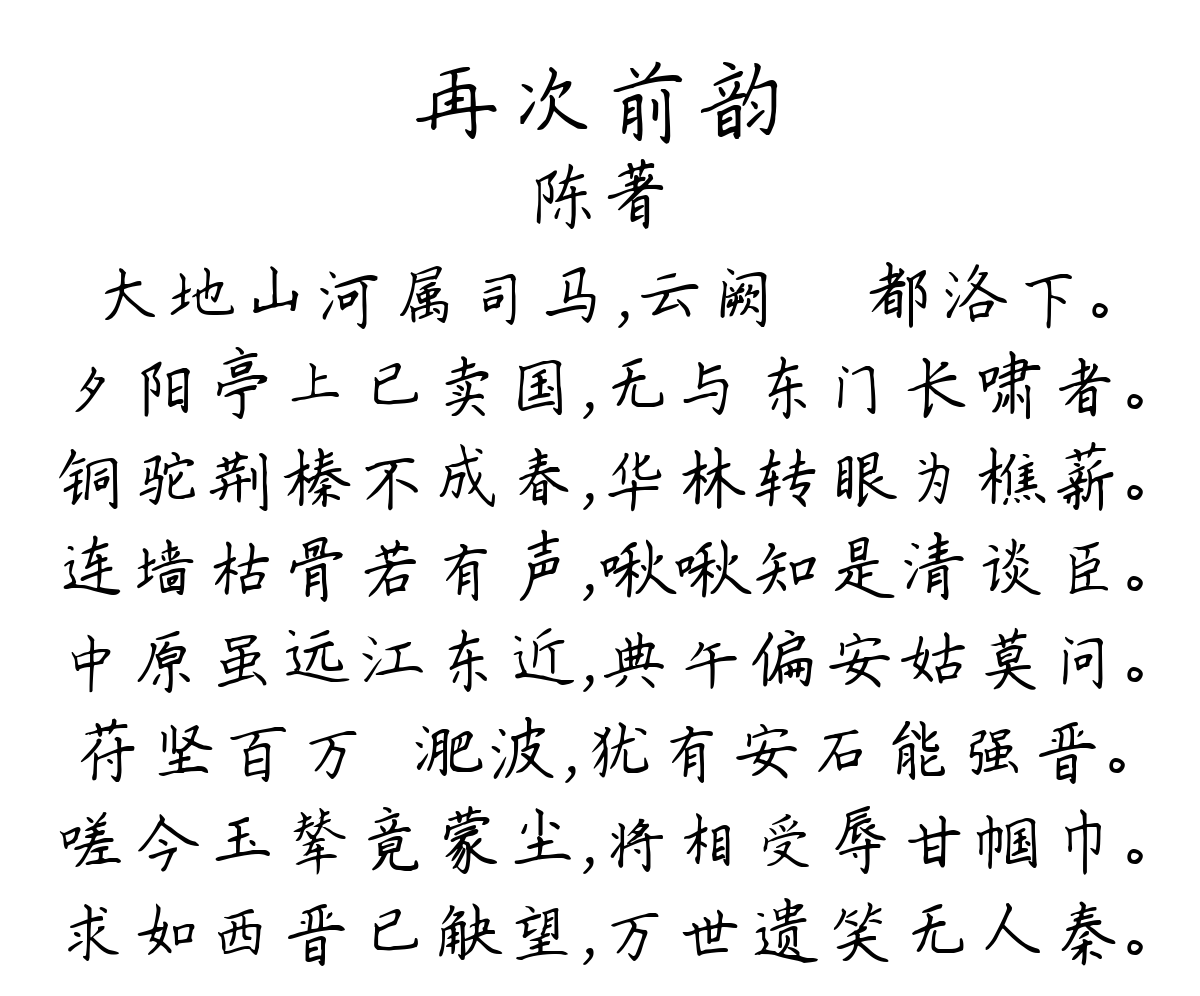 再次前韵
陈著
大地山河属司马,云阙 都洛下。
夕阳亭上已卖国,无与东门长啸者。
铜驼荆榛不成春,华林转眼为樵薪。
连墙枯骨若有声,啾啾知是清谈臣。
中原虽远江东近,典午偏安姑莫问。
苻坚百万 淝波,犹有安石能强晋。
嗟今玉辇竟蒙尘,将相受辱甘帼巾。
求如西晋已觖望,万世遗笑无人秦。